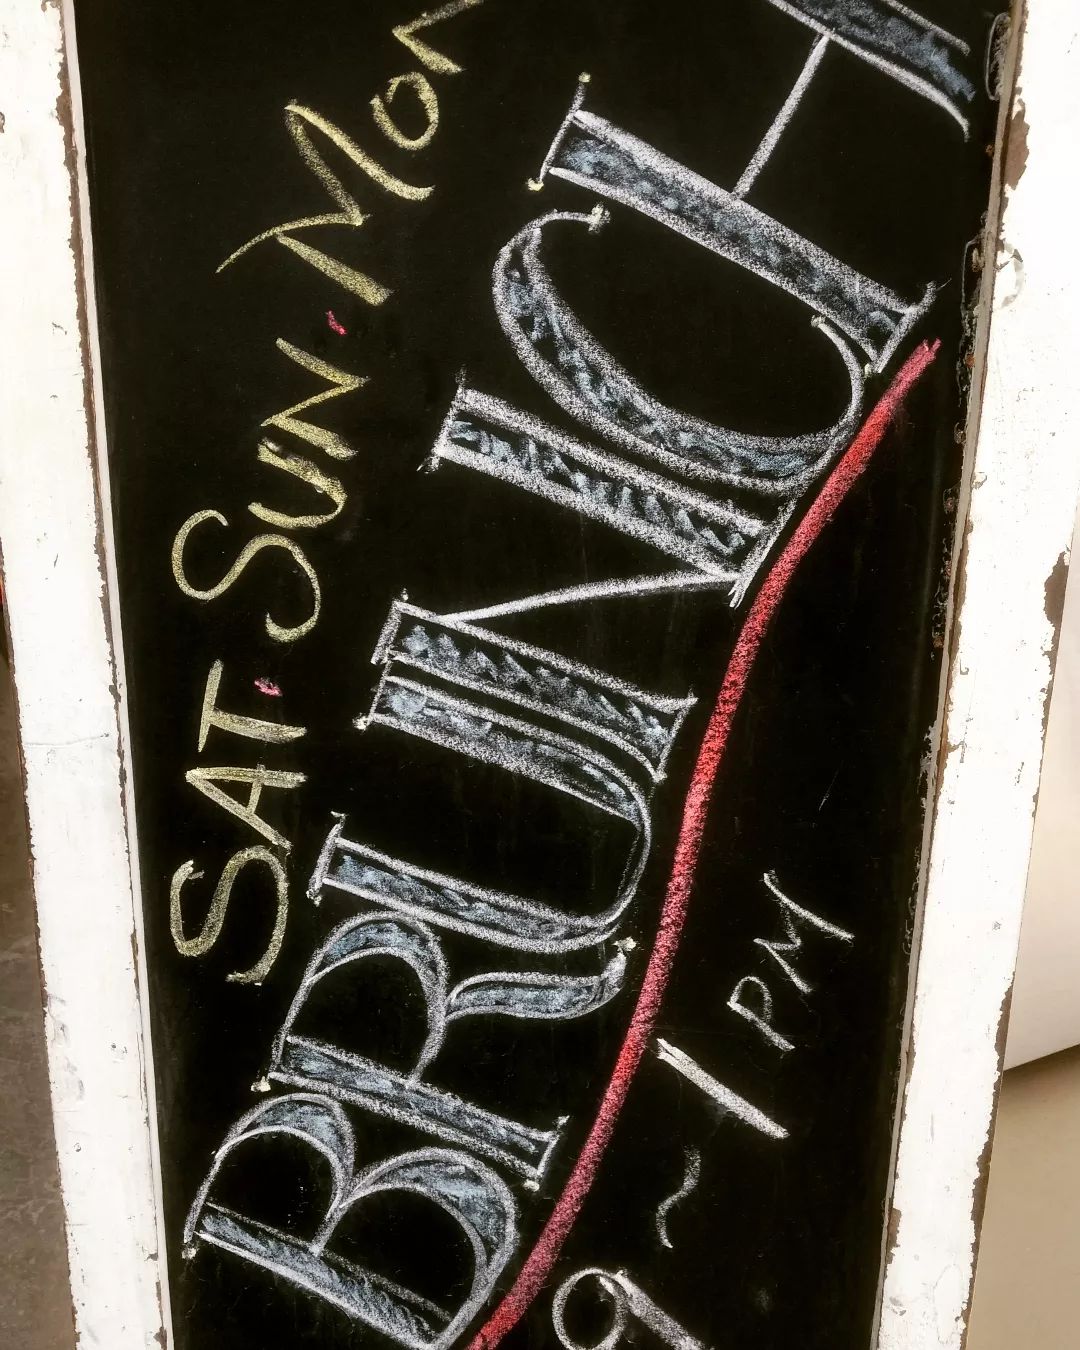 SAT · SUN · Mon
BRUNCH
9 ~ 1 PM